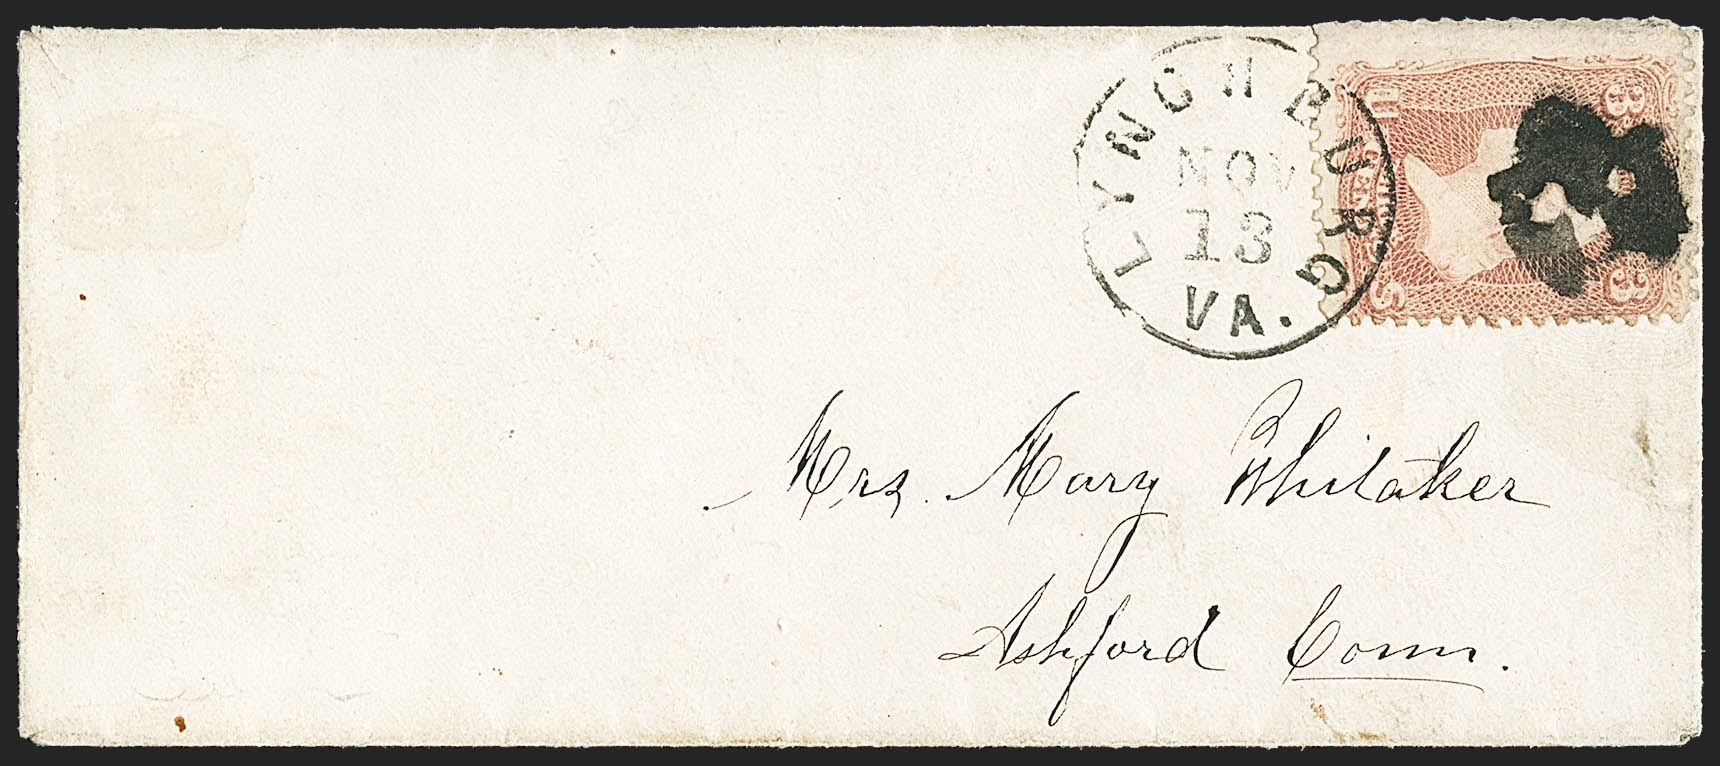 LYNCHBURG
NOV
13
VA.
U S
3 3
Mrs. Mary Whitaker
Ashford Conn.